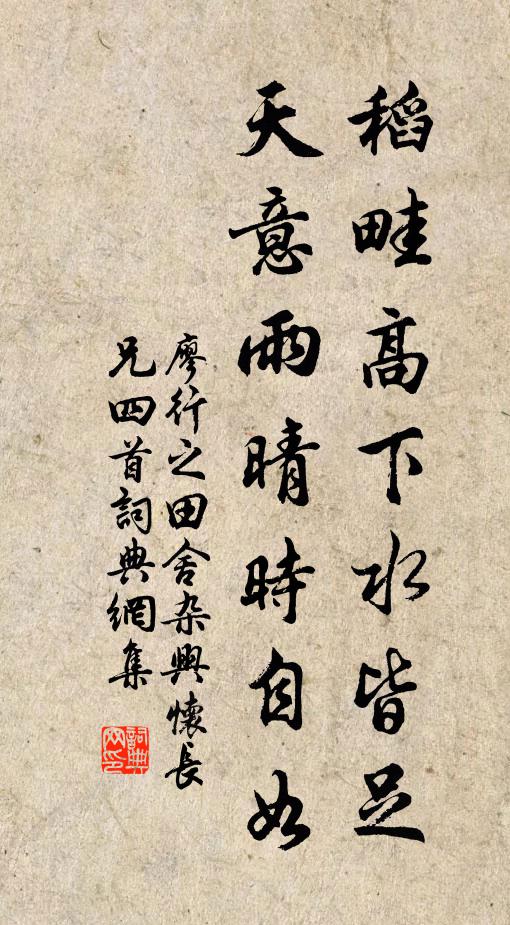 稻畦高下水皆足
天意雨晴時自如
廖行之田舍杂興懷長
兄四首詞典網集
詞典网印